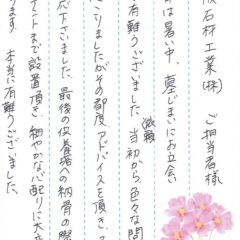 阪石材工業(株) ご担当者様
日は暑い中、墓じまいにお立会い
有難うございました。当初から色々な問
依頼
こりましたがその都度アドバイスを頂き、
び下さいました。最後の供養塔への納骨の際
テントまで設置頂き細やかな心配りに大変
ります。本当に有難うございました。